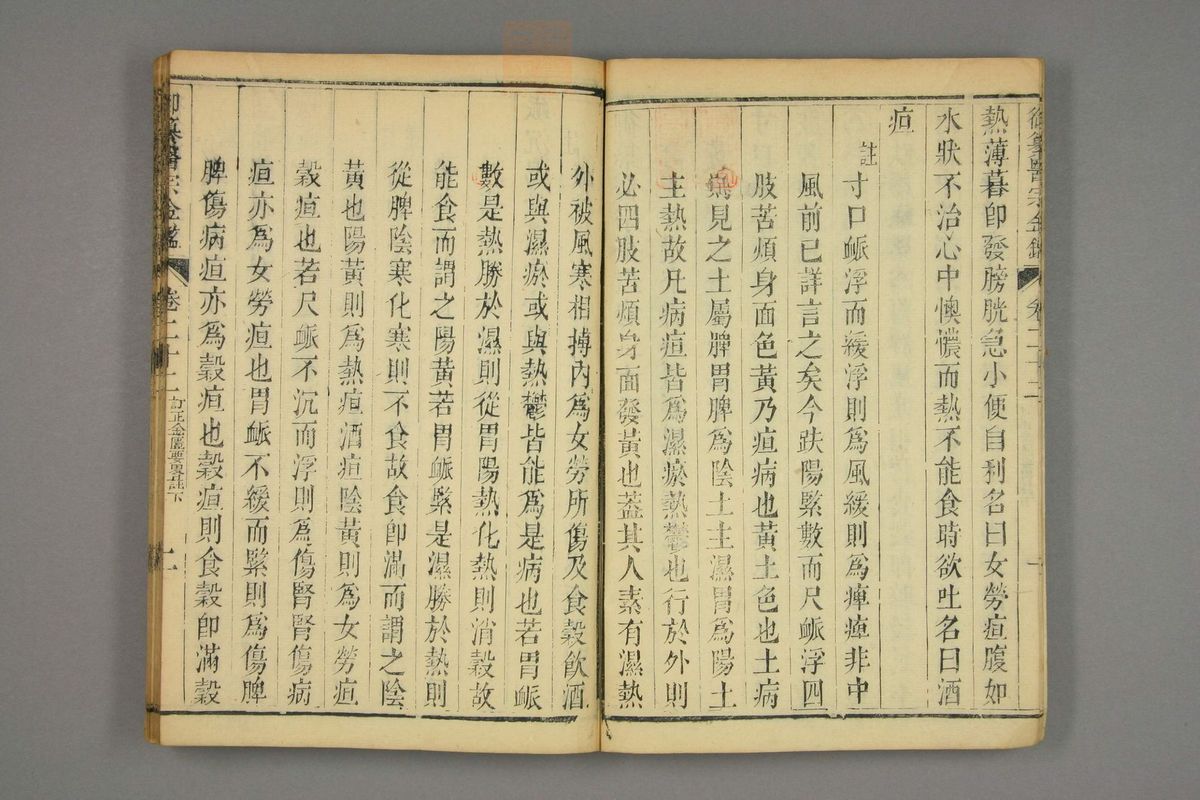 御纂醫宗金鑑 卷二十二
熱薄暮卽發膀胱急小便自利名曰女勞疸腹如
水狀不治心中懊憹而熱不能食時欲吐名曰酒
疸
註
寸口䘑浮而緩浮則爲風緩則爲痺痺非中
風前已詳言之矣今趺陽緊數而尺䘑浮四
肢苦煩身面色黃乃疸病也黃土色也土病
則見之土屬脾胃脾爲陰土主濕胃爲陽土
主熱故凡病疸皆爲濕瘀熱鬱也行於外則
必四肢苦煩身面發黃也蓋其人素有濕熱
外被風寒相搏內爲女勞所傷及食穀飲酒
或與濕瘀或與熱鬱皆能爲是病也若胃䘑
數是熱勝於濕則從胃陽熱化熱則消穀故
能食而謂之陽黃若胃䘑緊是濕勝於熱則
從脾陰寒化寒則不食故食卽滿而謂之陰
黃也陽黃則爲熱疸酒疸陰黃則爲女勞疸
穀疸也若尺䘑不沉而浮則爲傷腎腎傷病
疸亦爲女勞疸也胃䘑不緩而緊則爲傷脾
脾傷病疸亦爲穀疸也穀疸則食穀卽滿穀
御纂醫宗金鑑 卷二十二 訂正金匱要畧註下 二